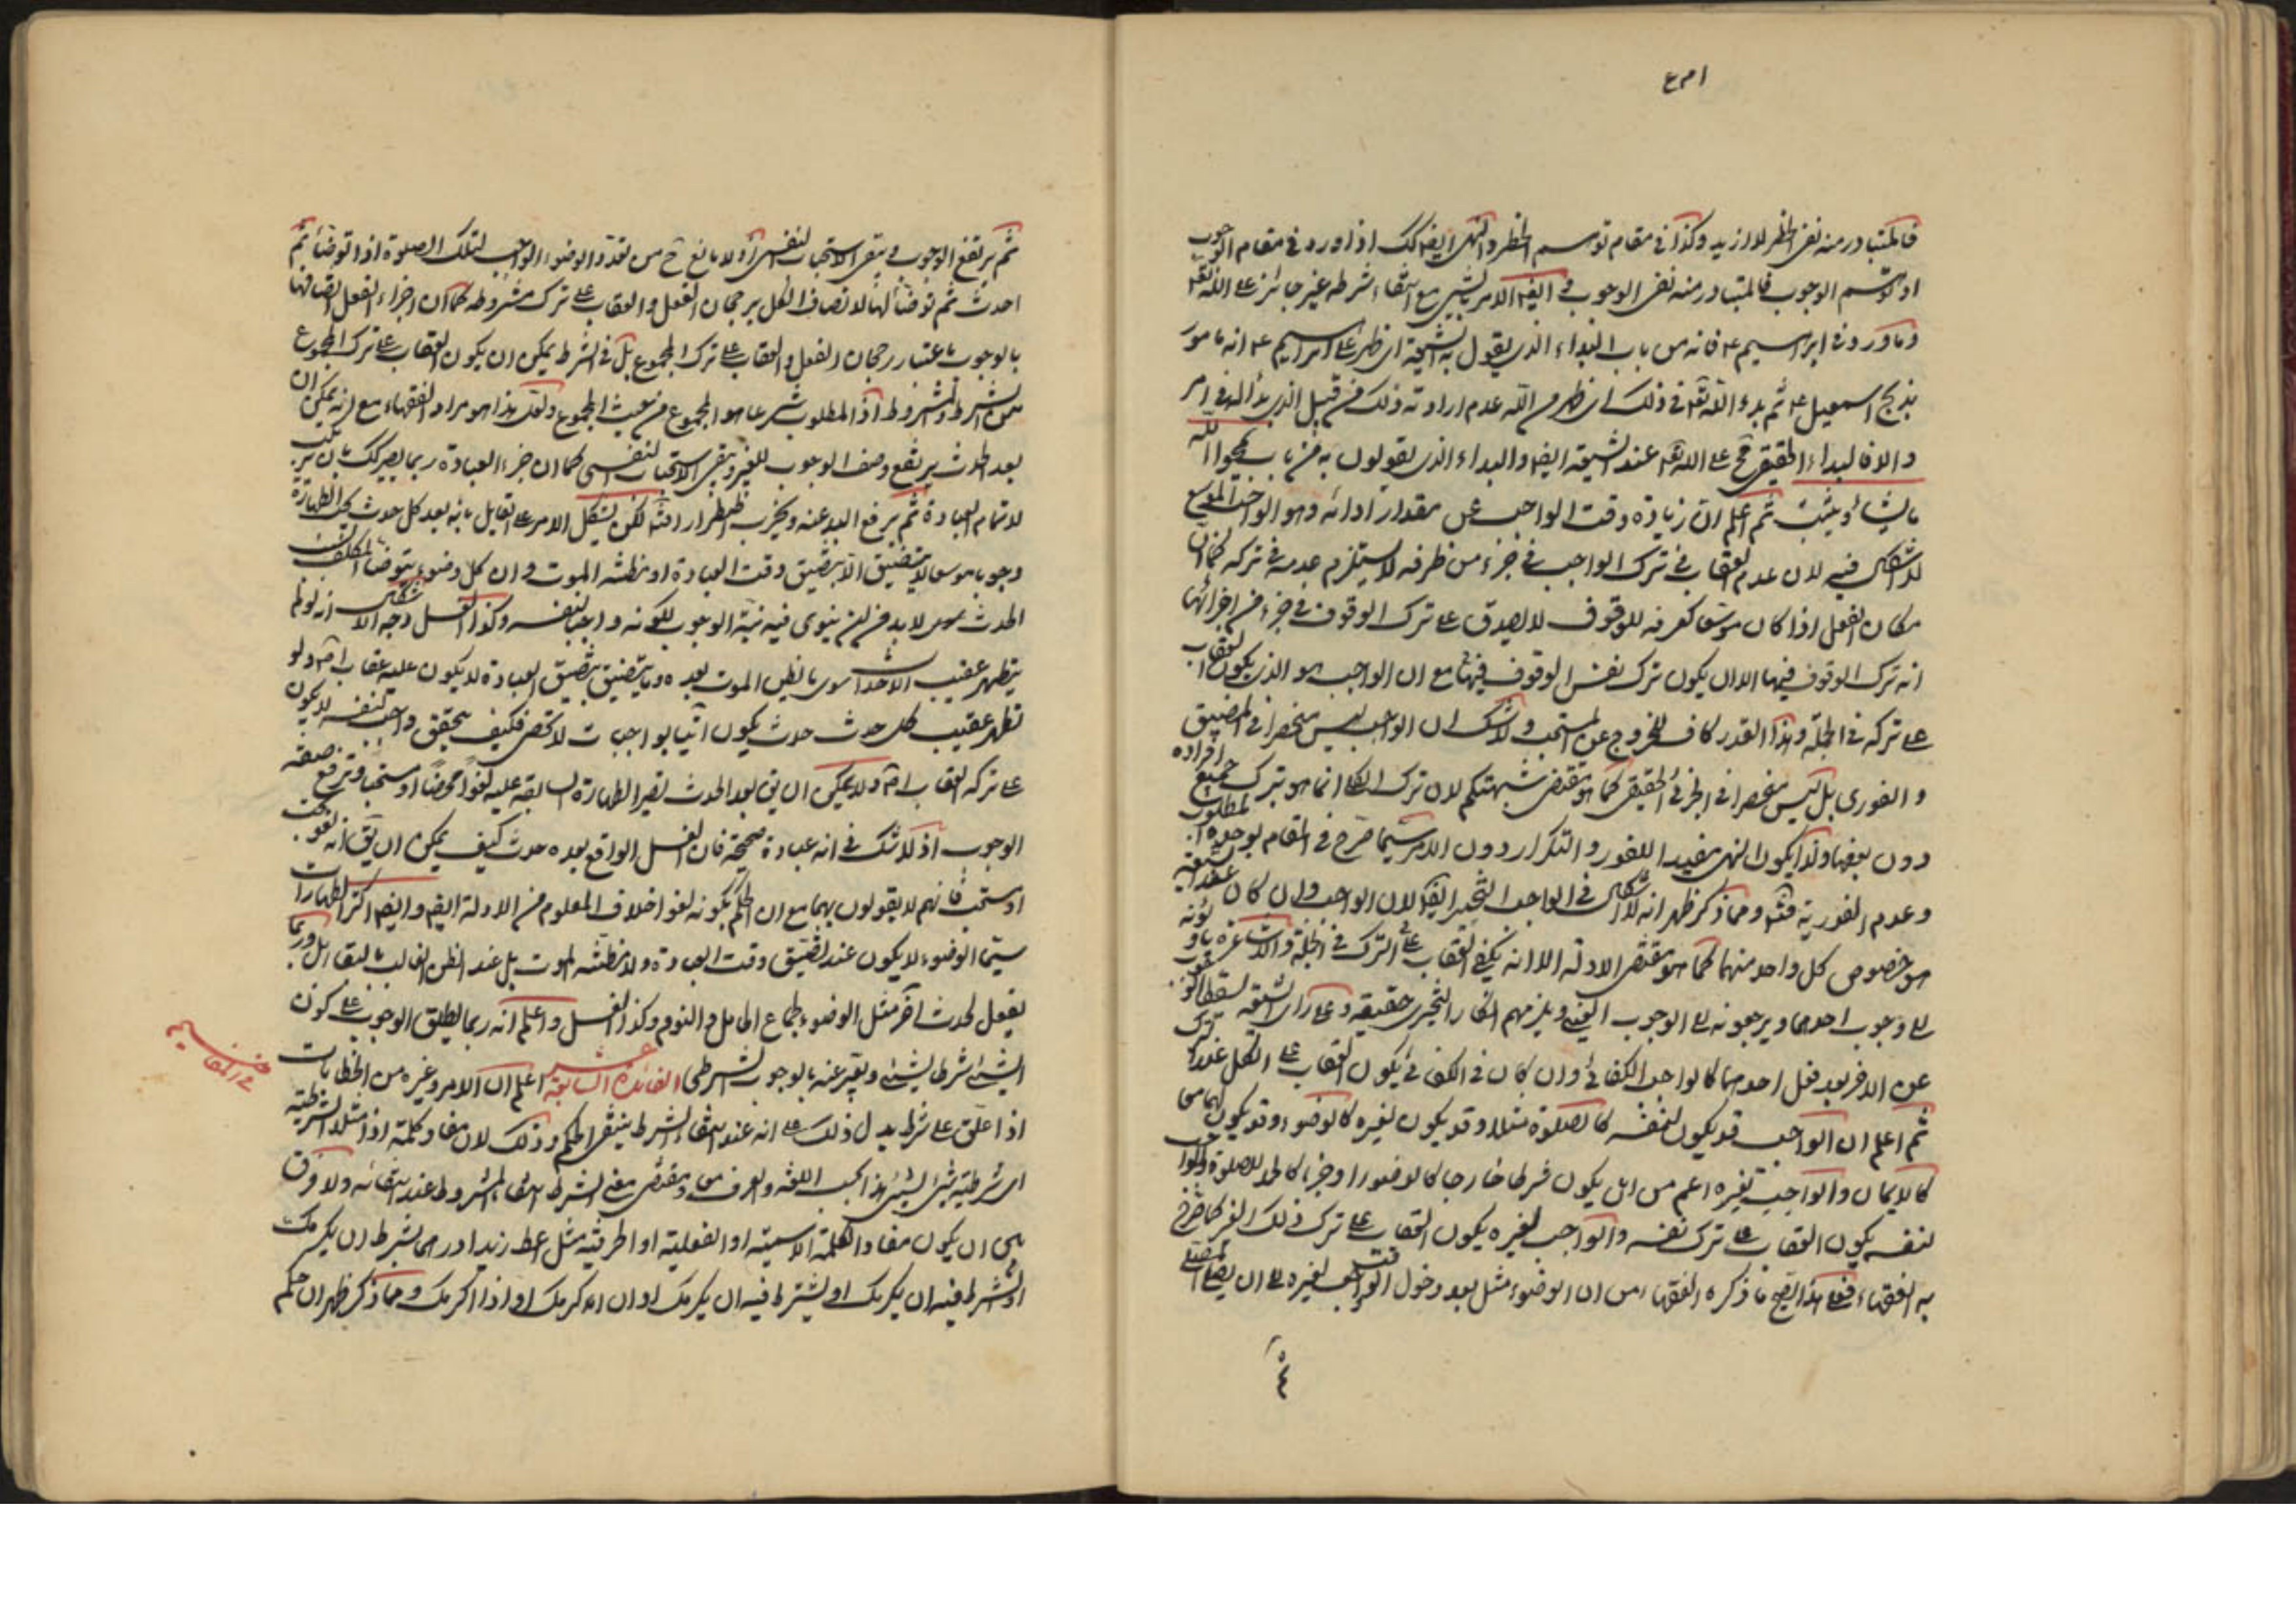 فالمتبادر منه نفى الحظر لا ازيد وكذا فى مقام توهم الحظر والنهى ايضا كك اذا ورد فى مقام الوجوب
او توهم الوجوب فالمتبادر منه نفى الوجوب ايضا الامر بالشيئ مع انتفاء شرطه غير جائز على الله تعالى
وما ورد فى ابراهيم ع فانه من باب البداء الذى يقول به الشيعة اى ظهر على ابراهيم ع انه مامور
بذبح اسمعيل ع ثم بدء الله تعالى فى ذلك اى ظهر من الله عدم ارادته ذلك من قبيل الذى بدأ له فى امر
والا فالبداء الحقيقى مح على الله تعالى عند الشيعة ايضا والبداء الذى يقولون به من باب يمحو الله
ما يشاء ويثبت ثم اعلم ان زيادة وقت الواجب عن مقدار ادائه وهو الواجب الموسع
لا اشكال فيه لان عدم العقاب فى ترك الواجب فى جزء من ظرفه لا يستلزم عدمه فى تركه كما ان
مكان الفعل اذا كان موسعا كعرفة للوقوف لا يصدق على ترك الوقوف فى جزء من اجزائها
انه ترك الوقوف فيها الا ان يكون ترك نفس الوقوف فيها مع ان الواجب هو الذى يكون العقاب
على تركه فى الجملة وهذا القدر كاف للخروج عن المستحب ولا شك ان الواجب ليس منحصرا فى المضيق
و الفورى بل ليس منحصرا فى الجزئى الحقيقى كما هو مقتضى شبهتكم لان ترك الكلى انما هو بترك جميع افراده
دون بعضها ولذا يكون النهى مفيدا للفور والتكرار دون الامر سيما صرح فى المقام بوحدة المطلوب
وعدم الفورية فيه ومما ذكر ظهر انه لا اشكال فى الواجب التخييرى ايضا لان الواجب وان كان عند الشيعة
هو خصوص كل واحد منهما كما هو مقتضى الادلة الا انه يكفى العقاب على الترك فى الجملة والاشاعرة
على وجوب احدهما ويرجعونه الى الوجوب العينى ويلزمهم انكار التخييرى حقيقة وعلى راى الشيعة يسقط
عن الاخر بعد فعل احدهما كالواجب الكفائى وان كان فى الكفائى يكون العقاب على الكل عند ترك
ثم اعلم ان الواجب قد يكون لنفسه كالصلوة مثلا وقد يكون لغيره كالوضوء وقد يكون لهما معا
كالايمان والواجب لغيره اعم من ان يكون شرطا خارجا كالوضوء او جزءا كالحمد للصلوة والواجب
لنفسه يكون العقاب على ترك نفسه والواجب لغيره يكون العقاب على ترك ذلك الغير كما صرح
به الفقهاء فعلى هذا يصح ما ذكره الفقهاء من ان الوضوء مثل بعد دخول وقت الواجب لغيره الى ان يصلى
ثم يرتفع الوجوب ويبقى الاستحباب لنفسى اذ لا مانع ح من تعدد الوضوء الواجب لتلك الصلوة اذا توضأ ثم
احدث ثم توضأ لها لاتصاف الكل برجحان الفعل والعقاب على ترك مشروطه كما ان اجزاء الفعل اتصافها
بالوجوب باعتبار رجحان الفعل والعقاب على ترك المجموع بل فى الشرط يمكن ان يكون العقاب على ترك المجموع
من الشرط والمشروط اذ المطلوب شرعا هو المجموع من حيث المجموع ولعل هذا هو مراد الفقهاء مع انه يمكن ان
بعد الحدث يرتفع وصف الوجوب للغير ويبقى الاستحباب النفسى كما ان جزء العبادة ربما يصير كك بان
لاتمام العبادة ثم يرفع اليد عنه لكن يشكل الامر على القائل بانه بعد كل حدث يجب الطهارة
وجوبا موسعا لا يتضيق الا بتضيق وقت العبادة او بظنه الموت وان كل وضوء يتوضأ المكلف
الحدث لا بد من ان ينوى فيه نية الوجوب لكونه واجبا لنفسه وكذا الغسل وجه الاشكال انه لو لم
يتطهر عقيب الاحداث سوى ما يظن الموت بعده وما يتضيق بتضيق العبادة لا يكون عليه عقاب ولو
تطهر عقيب كل حدث حدث يكون اتيا بواجبات لا تحصى فكيف يتحقق واجب لنفسه لا يكون
على تركه العقاب ولا يمكن ان يق بعد الحدث تصير الطهارة السابقة عليه لغوا محضا او مستحبا وترفع صفة
الوجوب اذ لا شك فى انه عبادة صحيحة فان الغسل الواقع بعده حدث كيف يمكن ان يق انه لغو
او مستحب فانهم لا يقولون بهما مع ان الحكم بكونه لغوا خلاف المعلوم من الادلة ايضا وايضا اكثر الطهارات
سيما الوضوء لا يكون عند تضيق وقت العبادة ولا مظنة الموت بل عند الظن الغالب بالبقاء بل وربما
يفعل لحدث اخر مثل الوضوء لجماع الحامل والنوم وكذا الغسل واعلم انه ربما يطلق الوجوب على كون
الشيئ شرطا لشيئ ويعبر عنه بالوجوب الشرطى الفائدة السابعة عشر اعلم ان الامر وغيره من الخطابات
اذا علق على شرط يدل ذلك على انه عند انتفاء الشرط ينتفى الحكم وذلك لان مفاد كلمة اذا مثلا الشرطية
اى شرطية شيئ لشيئ هذا بحسب اللغة والعرف ومقتضى معنى الشرط انتفاء المشروط عند انتفائه ولا فرق
بين ان يكون مفاد الكلمة الاسمية او الفعلية او الحرفية مثل اعط زيدا درهما بشرط ان يكرمك
او الشرط فيه ان يكرمك او يشترط فيه ان يكرمك او ان اكرمك او اذا اكرمك ومما ذكر ظهر ان حكم